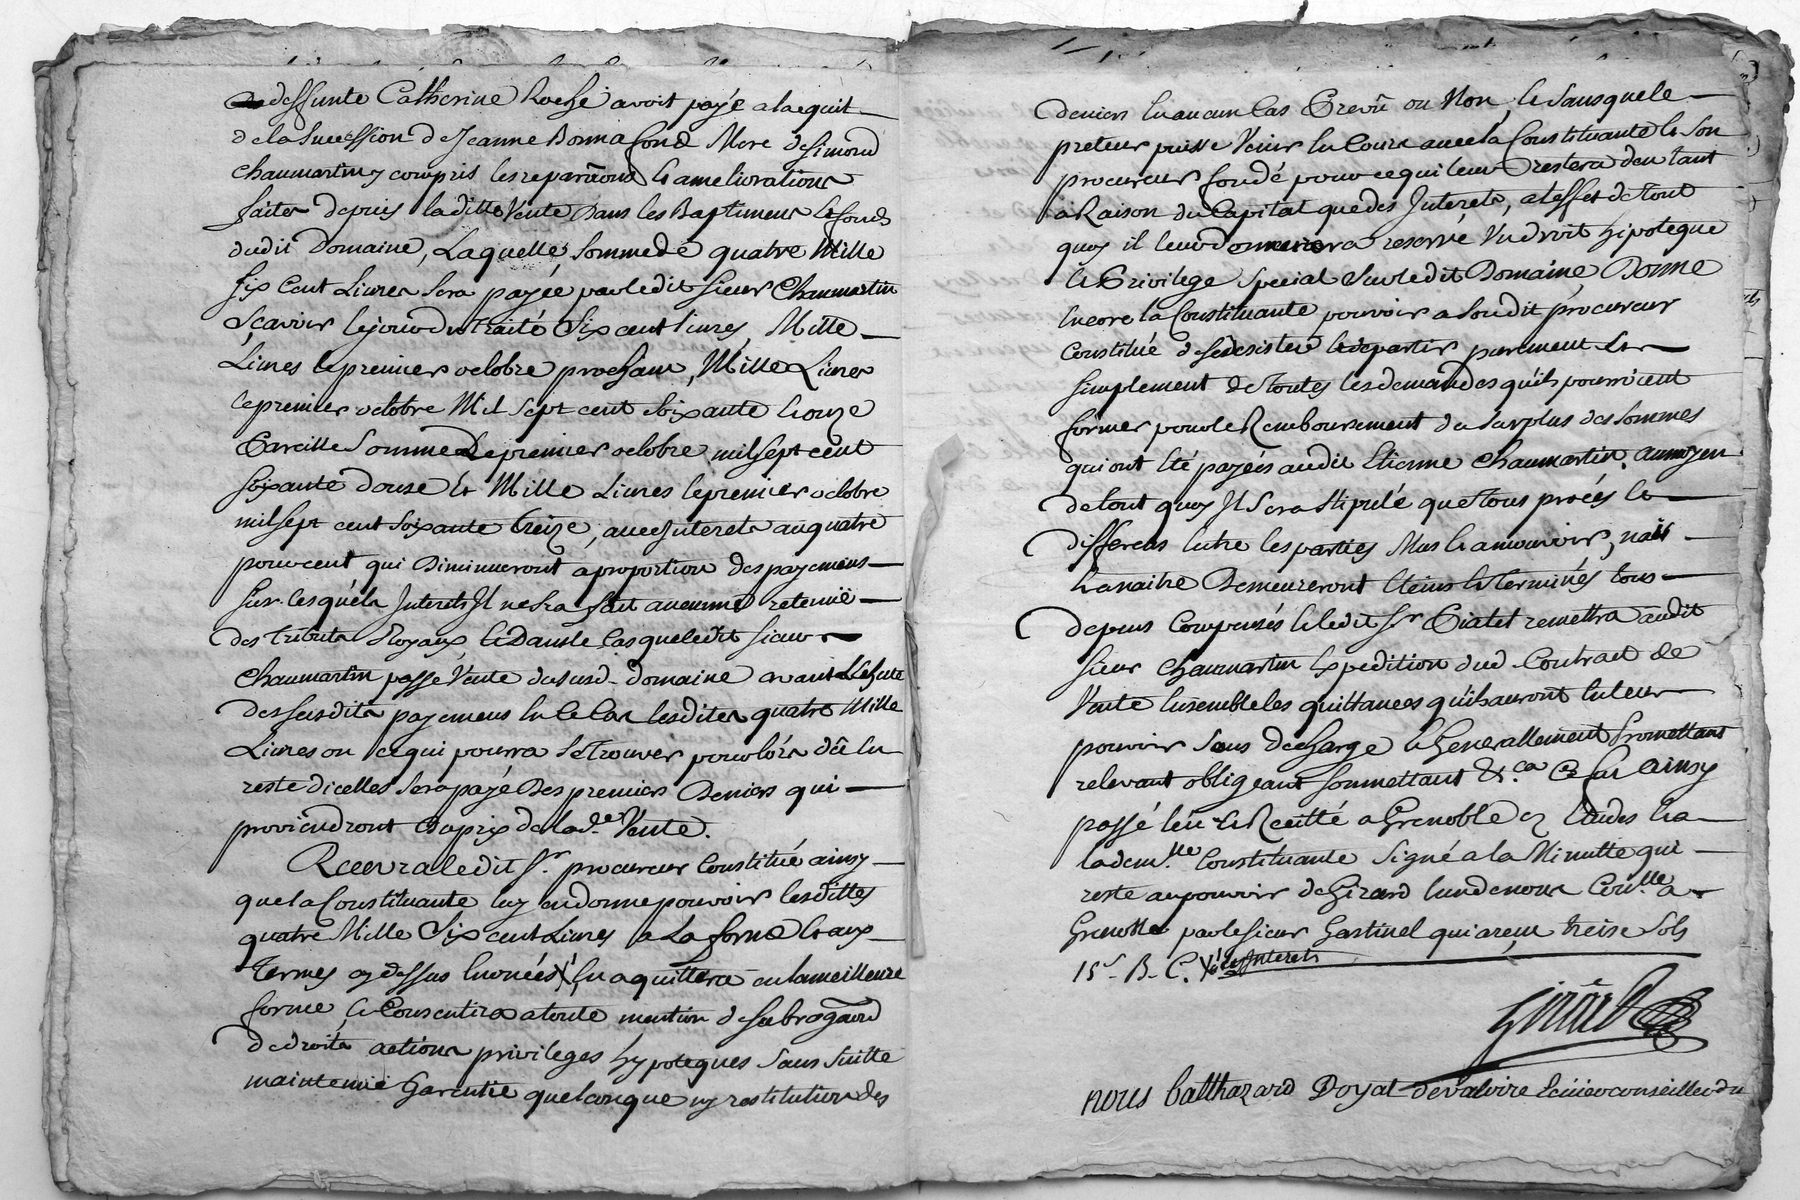 deffunte Catherine avoit payé a la quit
de la Succession de Jeanne Bonnafond Mere de Simond
chaumartin y compris les reparâons & ameliorations
faites depuis laditte Vente Dans les Baptimens & fonds
dudit Domaine, Laquelle Somme de quatre Mille
Six Cent Livres Sera payée par ledit Sieur Chaumartin
Sçavoir le jour du traité Six cent livres, Mille
Livres le premier octobre prochain, Mille Livres
le premier octobre Mil Sept cent Soixante & onze
Pareille Somme Le premier octobre mil Sept cent
Soixante douse & Mille Livres le premier octobre
mil Sept cent Soixante treize, avec Interets au quatre
pour cent qui Diminueront a proportion des payemens
Sur lesquels Interets Il ne Sera fait aucunne retenüe
des tributs Royaux, & Dans le Cas que ledit Sieur
Chaumartin passe Vente du Susd. domaine avant L'Echute
des Susdits payemens En Ce Cas lesdites quatre Mille
Livres ou Ce qui pourra Se trouver pour lors dû En
reste dicelles Sera payé Des premiers Deniers qui
proviêndront du prix de la de. Vente.
Recevra ledit Sr. procureur Constitué ainsy
que la Constituante luy en donne pouvoir lesdittes
quatre Mille Six cent Livres a La forme & aux
Termes cy dessus Enoncés X En aquittera en la meilleure
forme, & Consentira a toute mention de Subrogâond
de droits actions privileges hypoteques Sans Suitte
maintenüe Garentie quelconque ny restitution des
deniers En aucun Cas Prevû ou Non, & Sans que le
preteur puisse Venir En Cours avec la Constituante & Son
procureur fondé pour ce qui leur restera deu tant
a Raison du Capital que des Interets, a l'effet de tout
quoy il leur Demeurera reservé Un droit hipoteque
& Privilege Special Sur ledit Domaine, Donne
Encore la Constituante pouvoir a Son dit procureur
Constitué de Se desister & departir purement &
Simplement de toutes les demandes qu'ils pourroient
former pour le Remboursement du Surplus des Sommes
qui ont Eté payées audit Etienne Chaumartin, au moyen
de tout quoy Il Sera Stipulé que tous procés &
differens Entre les parties Mus & a mouvoir, nais
& a naitre Demeureront Eteins & Terminés tous
depens Compensés & ledit Sr Pialet remettra audit
Sieur Chaumartin Expedition dud. Contract de
Vente Ensemble les quittances qu'ils auront En leur
pouvoir Sous decharge & Generallement Promettant
relevant obligeant Soummettant &.ca Ce fut Ainsy
passé leu & Recitté a Grenoble Etudes & a
la dem.lle Constituante Signé a la Minutte qui
reste au pouvoir de Girard l'un de nous Con.lle a
Grenoble par le Sieur Gastinel qui a reçu treise Sols
15s. B. C. X & les Interets
Girard
nous balthazard Doyat devaloire Ecuier conseiller du